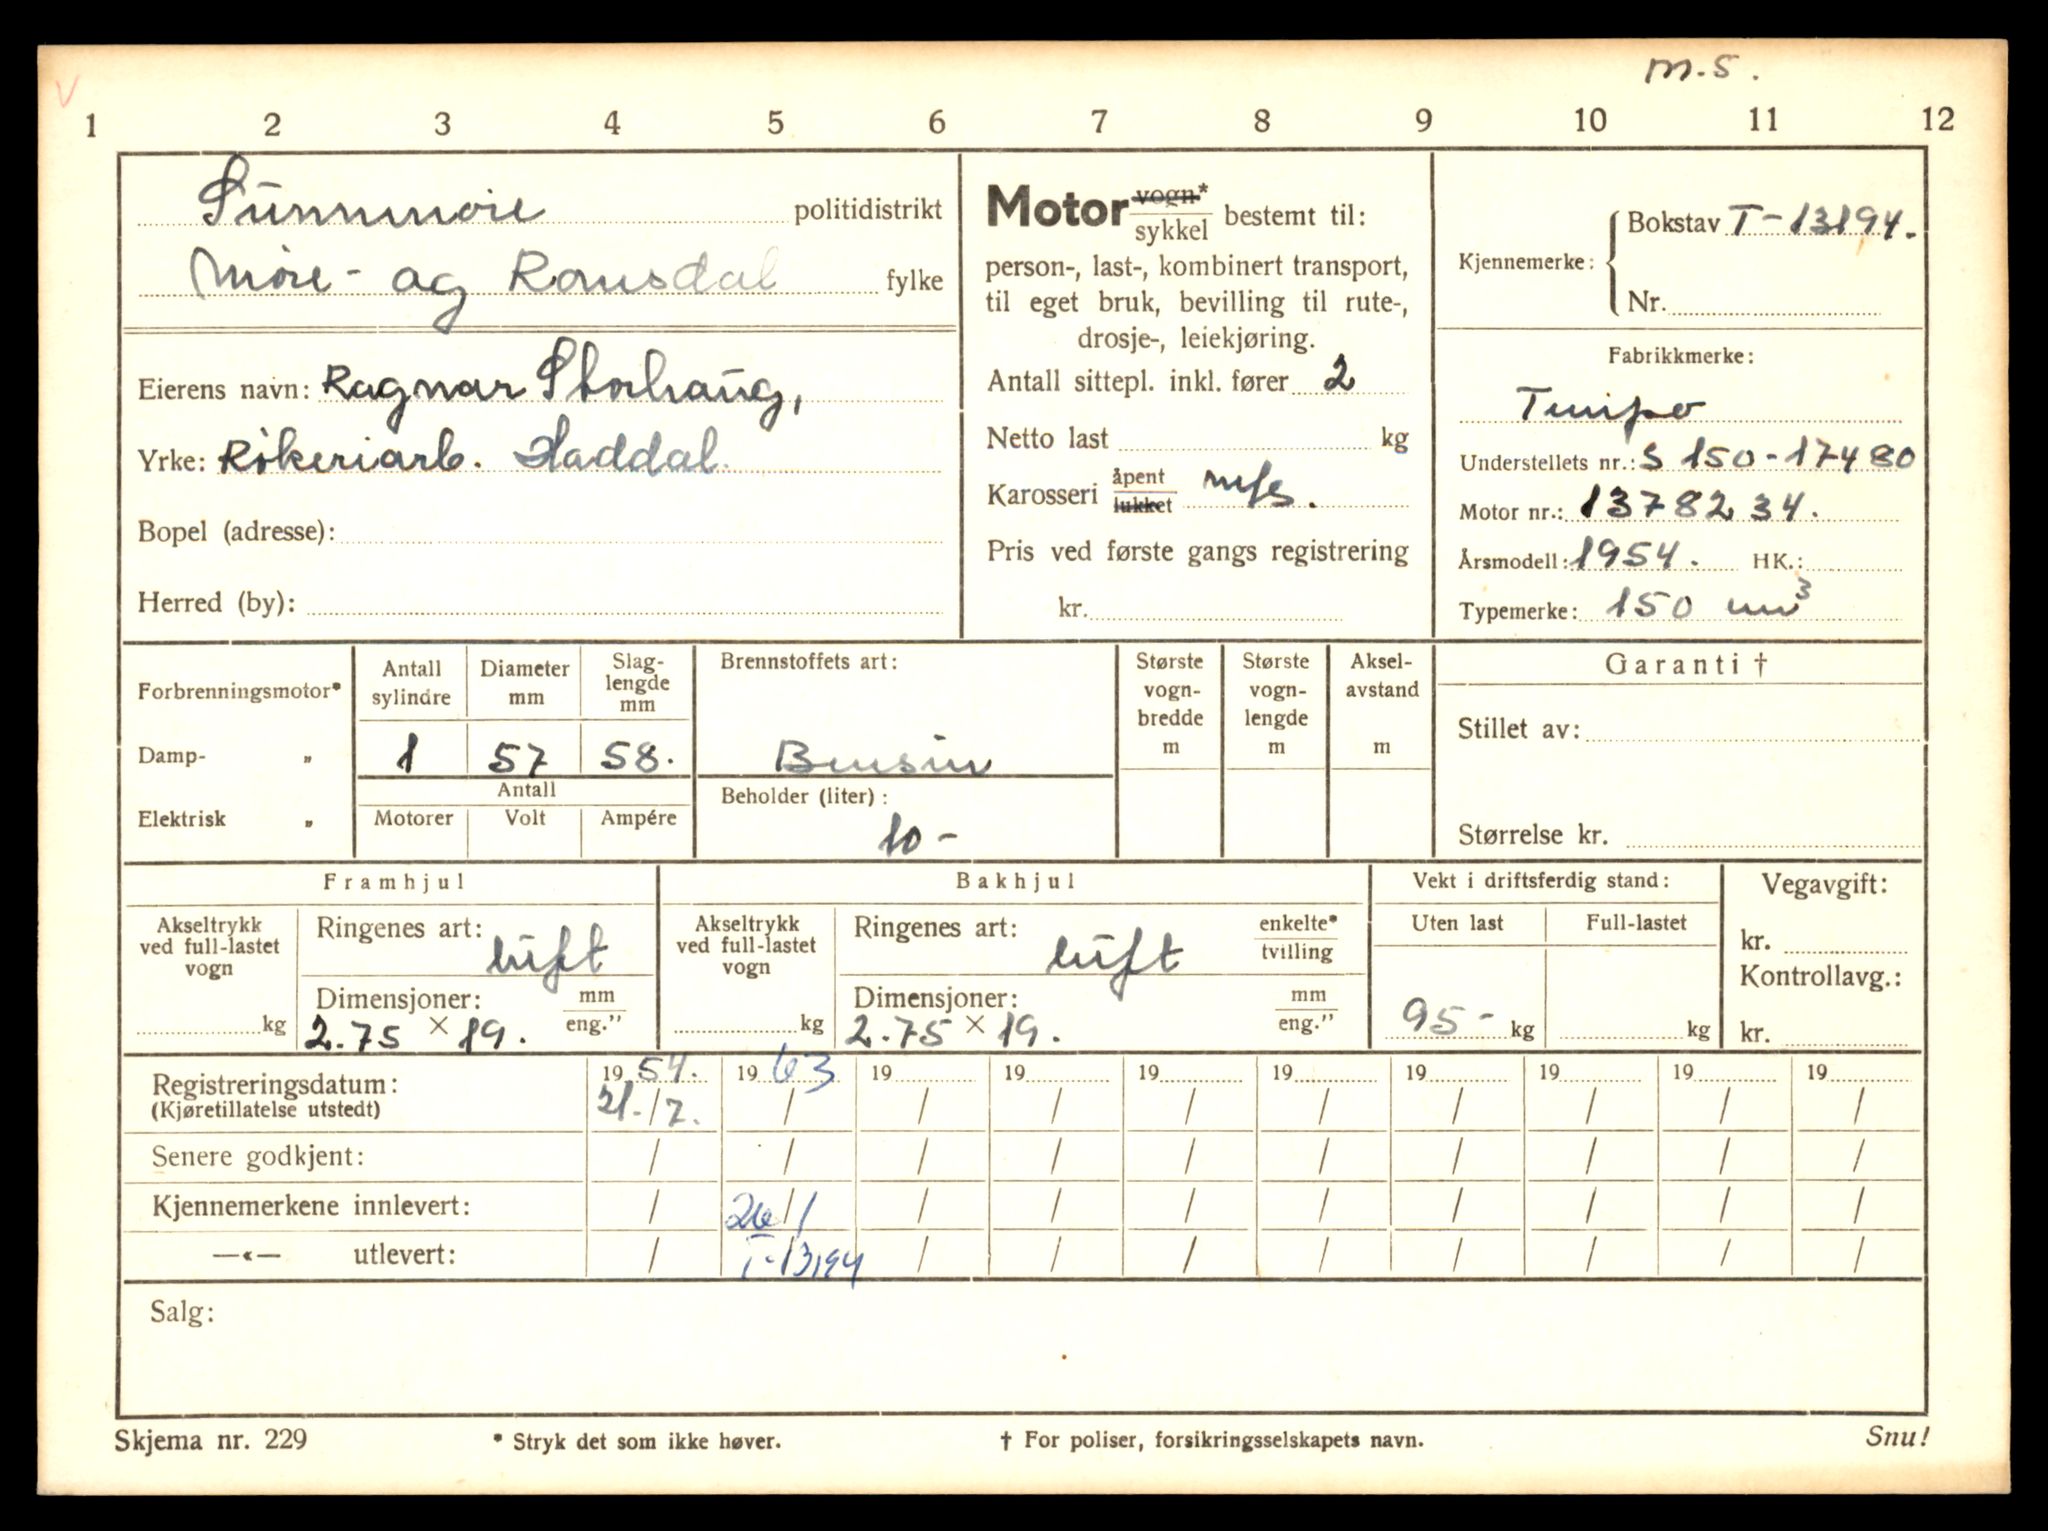 m.s.
V
1 2 3 4 5 6 7 8 9 10 11 12
Sunnmøre politidistrikt
Møre- og Romsdal fylke
Eierens navn: Ragnar Storhaug,
Yrke: Røkeriarb. Haddal.
Bopel (adresse):
Herred (by):
Motor vogn*
sykkel bestemt til:
person-, last-, kombinert transport,
til eget bruk, bevilling til rute-,
drosje-, leiekjøring.
Antall sittepl. inkl. fører 2
Netto last kg
Karosseri åpent
lukket
Pris ved første gangs registrering
kr.
Kjennemerke: Bokstav T-13194.
Nr.
Fabrikkmerke:
Tempo
Understellets nr.: S 150-17480
Motor nr.: 1378234.
Årsmodell: 1954. HK.:
Typemerke: 150 cm³
Forbrenningsmotor*
Damp- „
Elektrisk „
Antall sylindre Diameter mm Slag-lengde mm
1 57 58.
Antall
Motorer Volt Ampére
Brennstoffets art:
Bensin
Beholder (liter):
10-
Største vogn-bredde m
Største vogn-lengde m
Aksel-avstand m
Garanti †
Stillet av:
Størrelse kr.
Framhjul
Akseltrykk
ved full-lastet
vogn
kg
Ringenes art: luft
Dimensjoner: mm
2.75 × 19. eng."
Bakhjul
Akseltrykk
ved full-lastet
vogn
kg
Ringenes art: luft enkelte*
tvilling
Dimensjoner: mm
2.75 × 19. eng."
Vekt i driftsferdig stand:
Uten last Full-lastet
95- kg kg
Vegavgift:
kr.
Kontrollavg.:
kr.
Registreringsdatum: 19 54. 19 63 19 19 19 19 19 19 19 19
(Kjøretillatelse utstedt) 21./7. / / / / / / / / /
Senere godkjent: / / / / / / / / / /
Kjennemerkene innlevert: / 26/1 / / / / / / / /
—«— utlevert: / T-13194 / / / / / / / /
Salg:
Skjema nr. 229 * Stryk det som ikke høver. † For poliser, forsikringsselskapets navn. Snu!